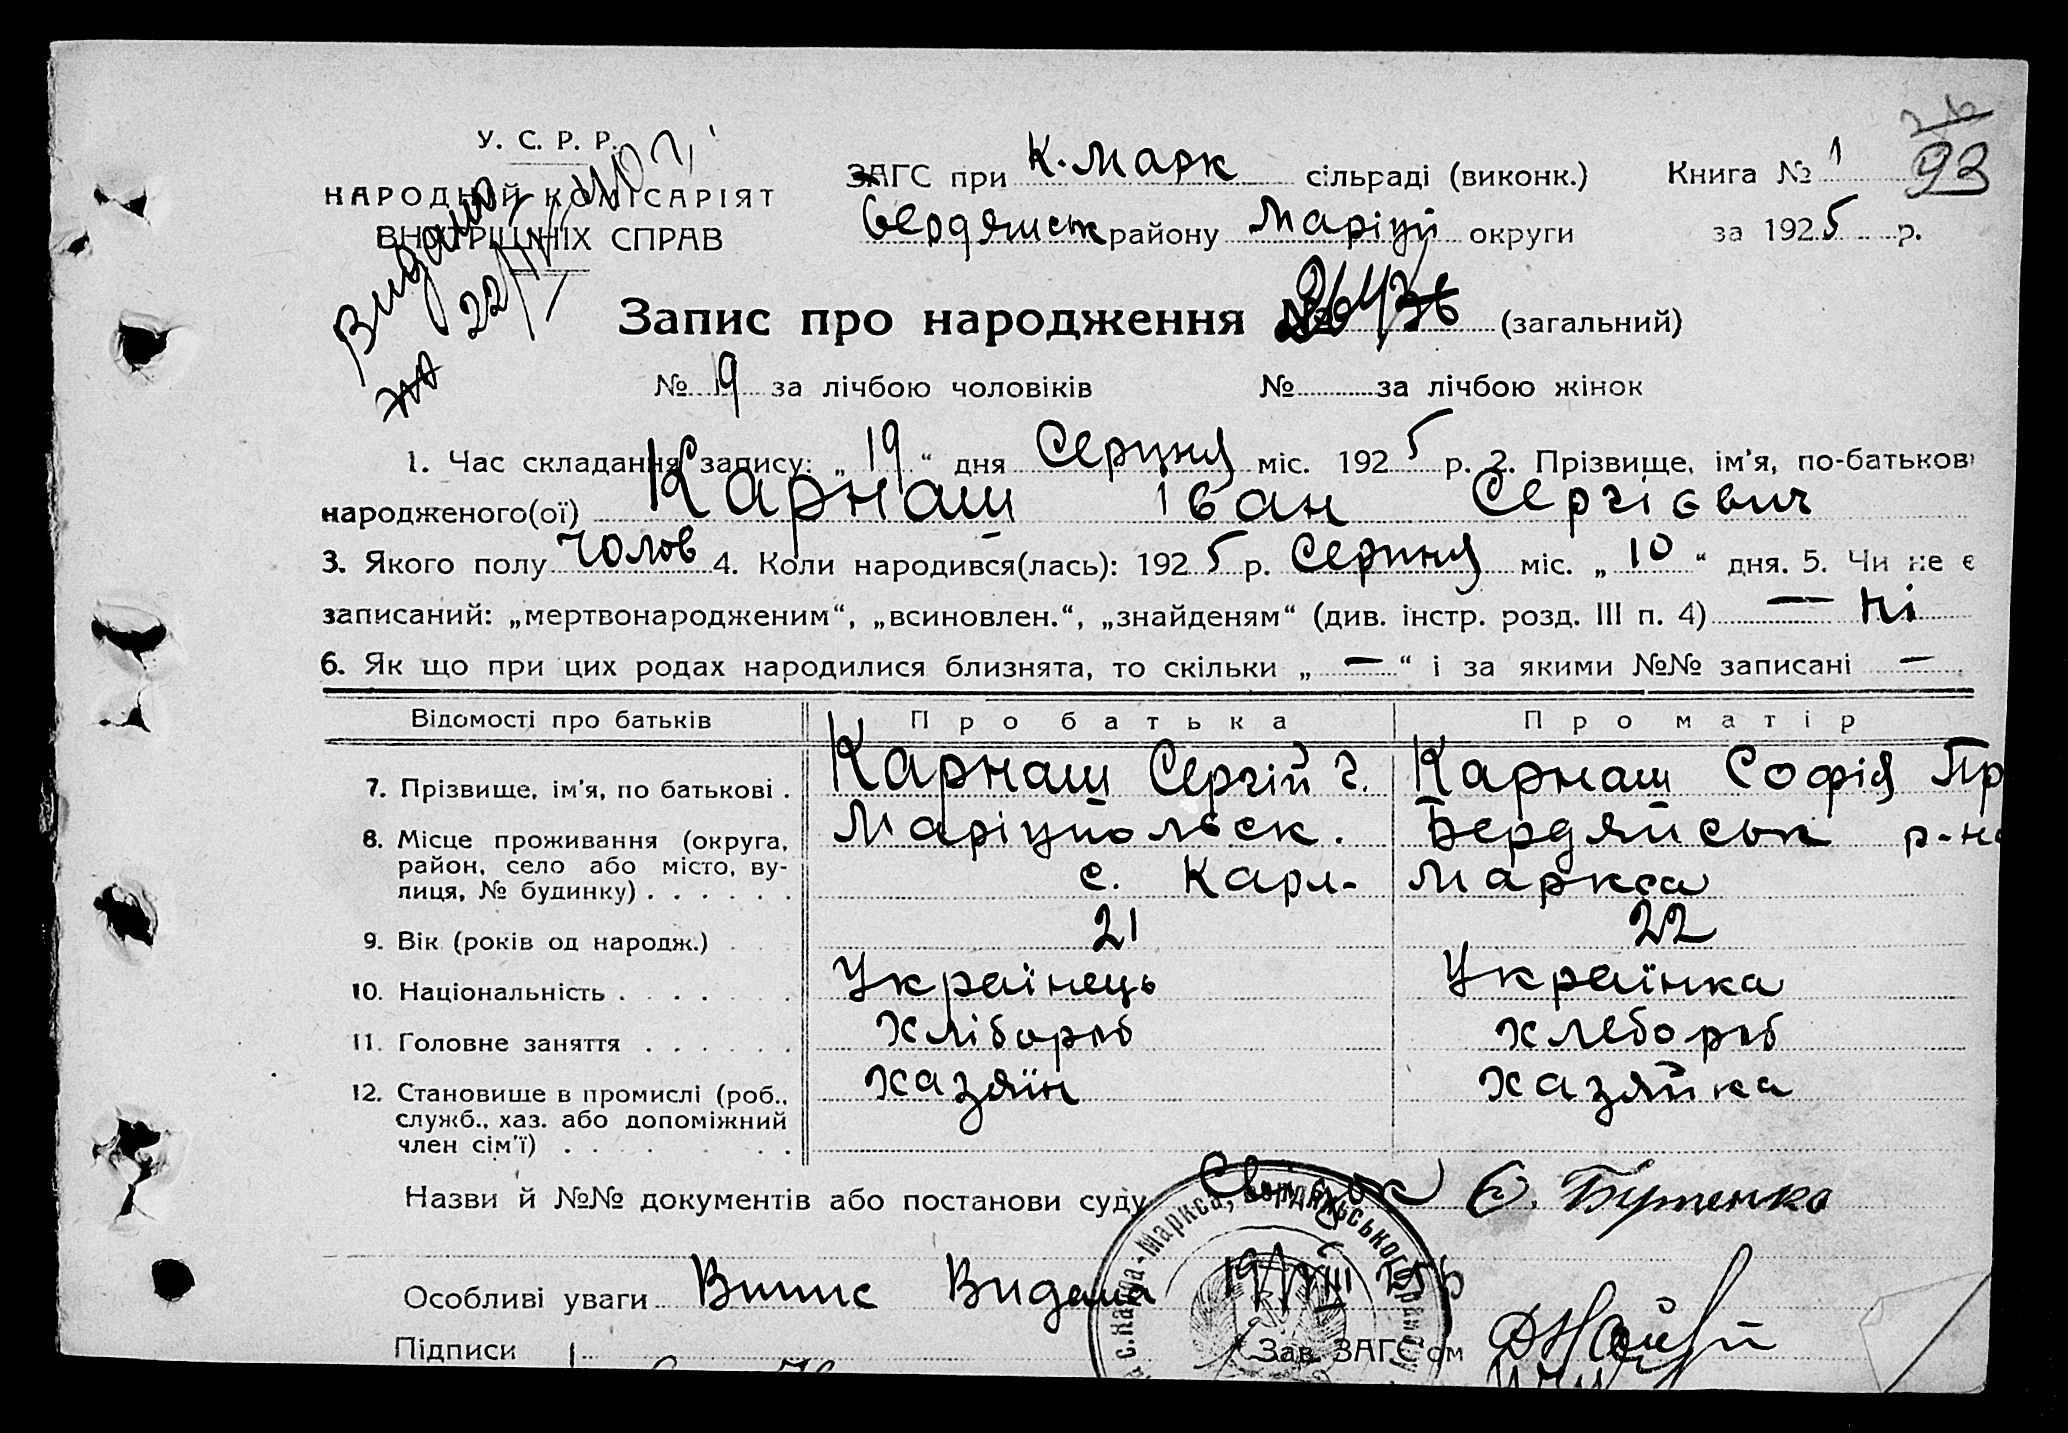 У. С. Р. Р.
НАРОДНІЙ КОМІСАРІЯТ
ВНУТРІШНІХ СПРАВ
Видано
ЗАГС при К. Марк сільраді (виконк.) Книга № 1
93
Бердянськ району Маріуп округи за 1925 р.
Запис про народження № 36 (загальний)
№ 19 за лічбою чоловіків № за лічбою жінок
1. Час складання запису: „19“ дня Серпня міс. 1925 р. 2. Прізвище, ім'я, по-батькові
народженого(ої) Карнаш Іван Сергієвич
3. Якого полу Чолов 4. Коли народився(лась): 1925 р. Серпня міс. „10“ дня. 5. Чи не є
записаний: „мертвонародженим“, „всиновлен.“, „знайденям“ (див. інстр. розд. III п. 4) — Ні
6. Як що при цих родах народилися близнята, то скільки „—“ і за якими №№ записані —
Відомості про батьків Про батька Про матір
7. Прізвище, ім'я, по батькові . Карнаш Сергій Г. Карнаш Софія Пр
8. Місце проживання (округа, район, село або місто, вулиця, № будинку) . . . . . . Маріупольск. Бердянськ р-на
с. Карл- Маркса
9. Вік (років од народж.) 21 22
10. Національність . . . . . . Українець Українка
11. Головне заняття . . . . . . Хлібороб Хлебороб
12. Становище в промислі (роб., служб., хаз. або допоміжний член сім'ї) . . . . . . Хазяїн Хазяйка
Назви й №№ документів або постанови суду Є. Бутенко
Особливі уваги Випис Видана 19/VIII 25
Підписи Зав. ЗАГС'ом